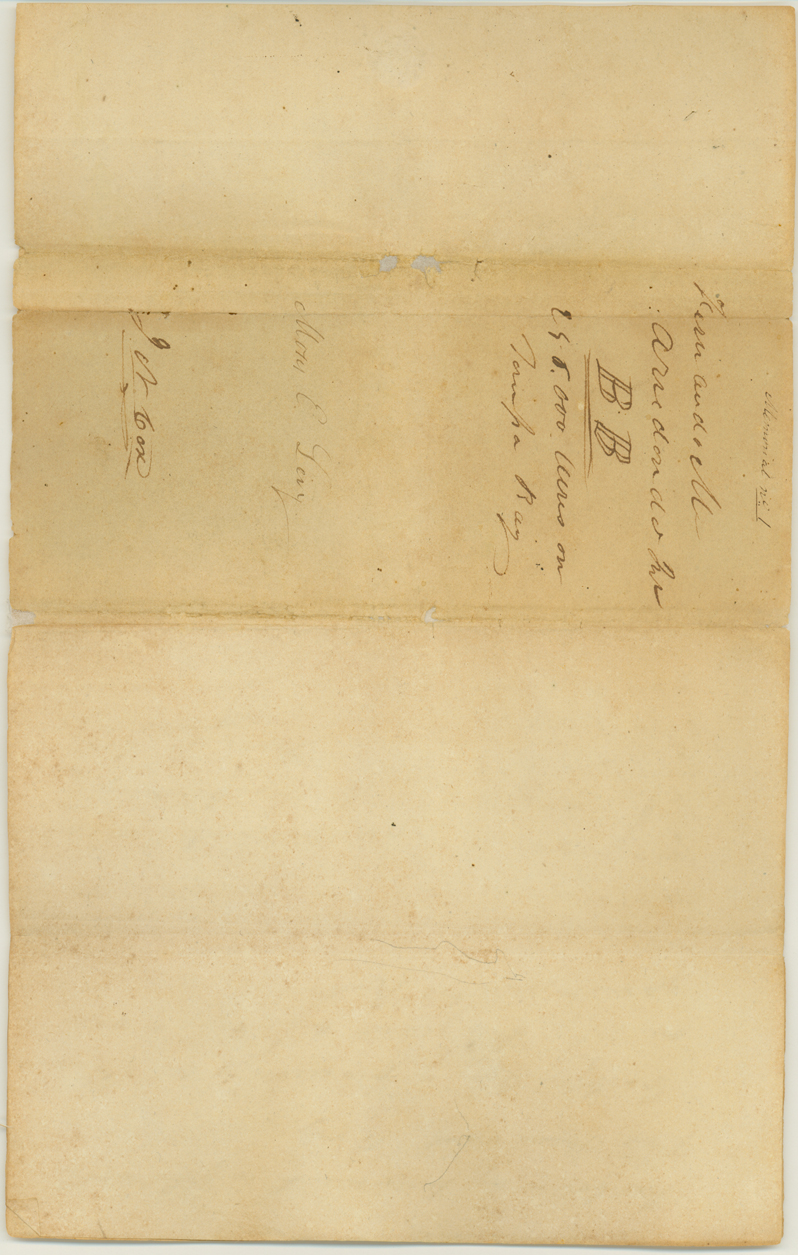 Memorial No 1
Fernando M
Arredondo Jnr
BB
255.000 acres on
Tampa Bay
Moses E Levy
J N Cox